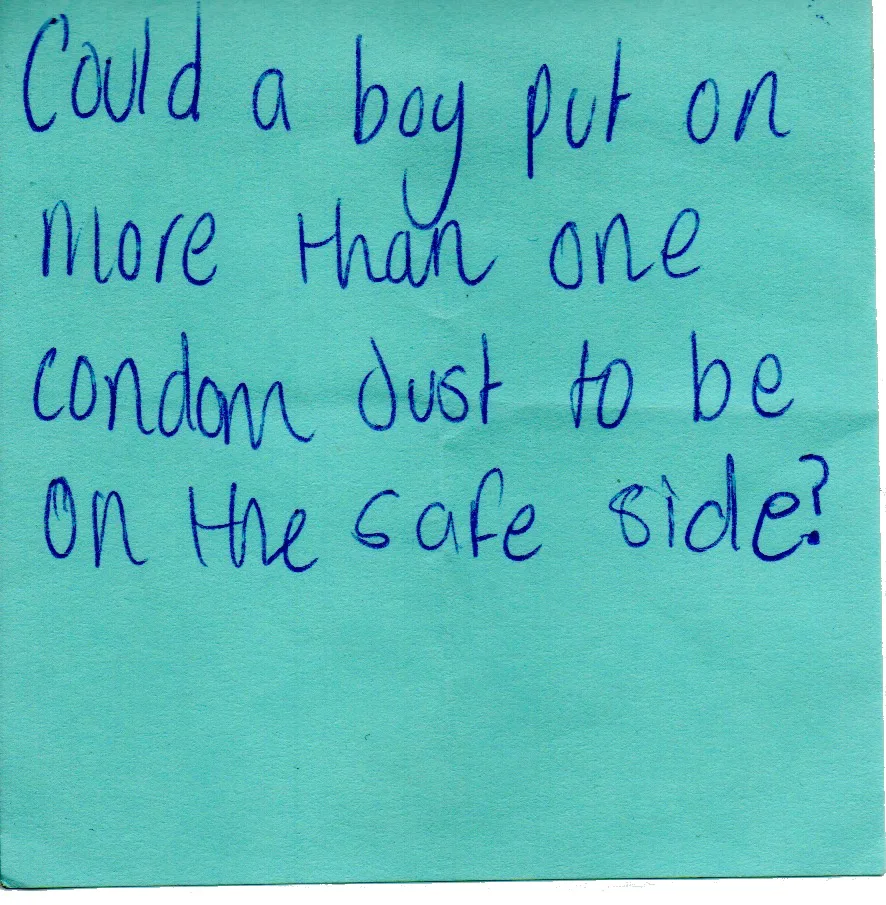 Could a boy put on
more than one
condom Just to be
on the safe side?